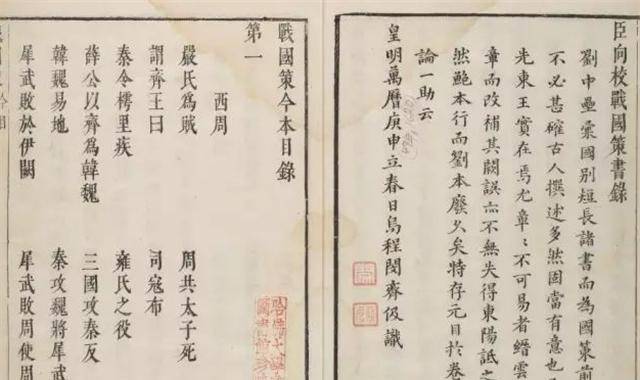 臣向校戰國策書錄
劉中壘彙國別短長諸書而為國策前
不必甚確古人撰述多然固當有意也
先東王實在焉尤章〻不可易者縉雲
章而改補其闕誤亦不無失得東陽詆之
然鮑本行而劉本廢久矣特存元目於卷
論一助云
皇明萬曆庚申立春日烏程閔齊伋識
戰國策今本目錄
第一
西周
嚴氏爲賊 周共太子死
謂齊王曰 司寇布
秦令樗里疾 雍氏之役
薛公以齊爲韓魏 三國攻秦反
韓魏易地 秦攻魏將犀武
犀武敗於伊闕 犀武敗周使周